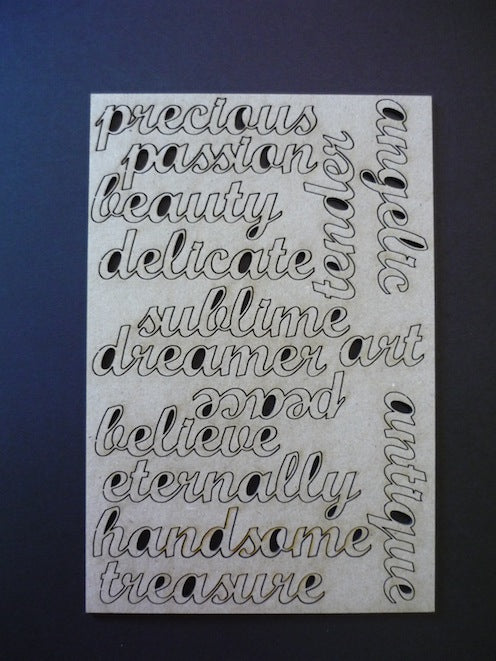 precious
passion
beauty
delicate
tender
angelic
sublime
dreamer
art
peace
believe
eternally
handsome
treasure
antique